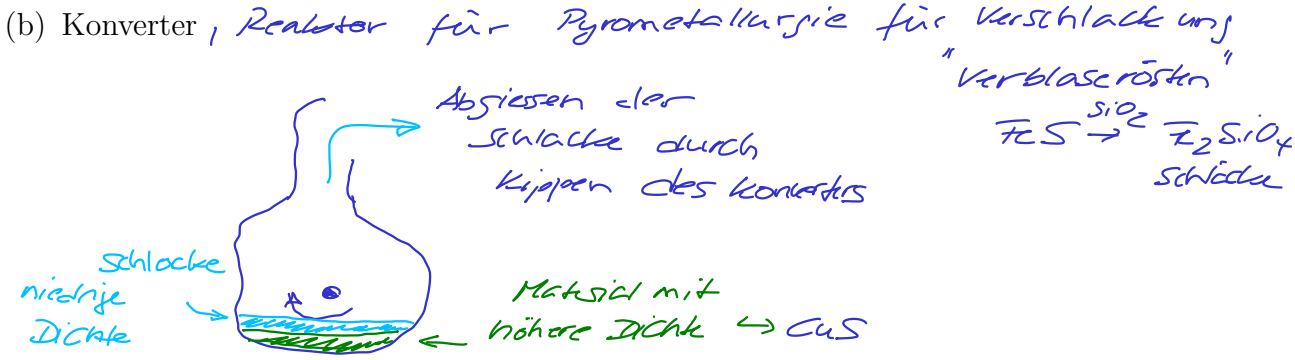 (b) Konverter, Reaktor für Pyrometallurgie für Verschlackung
"Verblaserösten"
FeS →SiO₂ Fe₂SiO₄
Schlacke
Abgiessen der
Schlacke durch
Kippen des Konverters
Schlacke
niedrige
Dichte
Material mit
höhere Dichte ↪ CuS